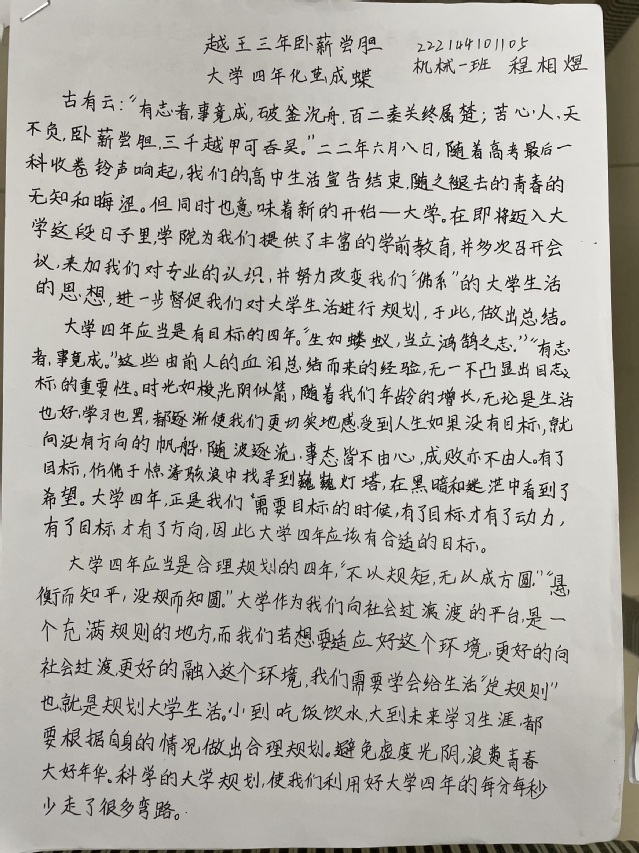 越王三年卧薪尝胆 222144101105
大学四年化茧成蝶 机械一班 程相煜
古有云：“有志者，事竟成，破釜沉舟，百二秦关终属楚；苦心人，天
不负，卧薪尝胆，三千越甲可吞吴。”二二年六月八日，随着高考最后一
科收卷铃声响起，我们的高中生活宣告结束，随之褪去的青春的
无知和晦涩。但同时也意味着新的开始—大学。在即将迈入大
学这段日子里，学院为我们提供了丰富的学前教育，并多次召开会
议，来加我们对专业的认识，并努力改变我们“佛系”的大学生活
的思想，进一步督促我们对大学生活进行规划，于此，做出总结。
大学四年应当是有目标的四年。“生如蝼蚁，当立鸿鹄之志。”“有志
者，事竟成。”这些由前人的血泪总结而来的经验，无一不凸显出目
标的重要性。时光如梭，光阴似箭，随着我们年龄的增长，无论是生活
也好，学习也罢，都逐渐使我们更切实地感受到人生如果没有目标，就
向没有方向的帆船，随波逐流，事态皆不由心，成败亦不由人。有了
目标，仿佛于惊涛骇浪中找寻到巍巍灯塔，在黑暗和迷茫中看到了
希望。大学四年，正是我们需要目标的时候，有了目标才有了动力，
有了目标才有了方向，因此大学四年应该有合适的目标。
大学四年应当是合理规划的四年，“不以规矩，无以成方圆。”“悬
衡而知平，没规而知圆。”大学作为我们向社会过渡的平台，是一
个充满规则的地方，而我们若想要适应好这个环境，更好的向
社会过渡，更好的融入这个环境，我们需要学会给生活“定规则”
也就是规划大学生活。小到吃饭饮水，大到未来学习生涯，都
要根据自身的情况做出合理规划。避免虚度光阴，浪费青春
大好年华。科学的大学规划，使我们利用好大学四年的每分每秒
少走了很多弯路。